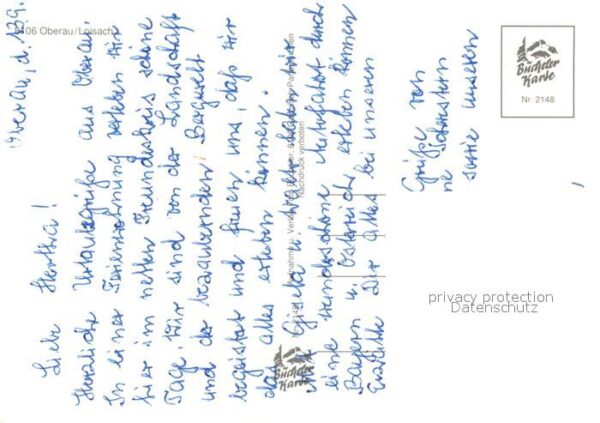 8106 Oberau/Loisach
Oberau, d. 13.9.
Liebe Hertha!
Herzliche Urlaubsgrüße aus Oberau.
In einer Ferienwohnung erleben wir
hier im netten Freundeskreis schöne
Tage. Wir sind von der Landschaft
und der bezaubernden Bergwelt
begeistert und freuen uns, daß wir
das alles erleben können.
Gisela u. hatten wir
eine wunderschöne Autofahrt durch
Bayern u. Österreich erleben können
Erzähle Dir alles bei unserem
Grüße von
sowie unseren
Nachdruck verboten
Büchder
Karte
Büchder
Karte
Nr. 2148
privacy protection
Datenschutz